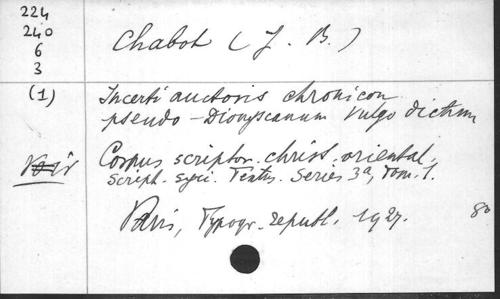 224
240
6
3
(1)
Chabot (J. B.)
Incerti auctoris chronicon
pseudo-Dionyscanum vulgo dictum
Voir
Corpus scriptor. christ. oriental.
Script. syri. Textus. Series 3a, Tom. 1.
Paris, Typogr. republ. 1927.
80